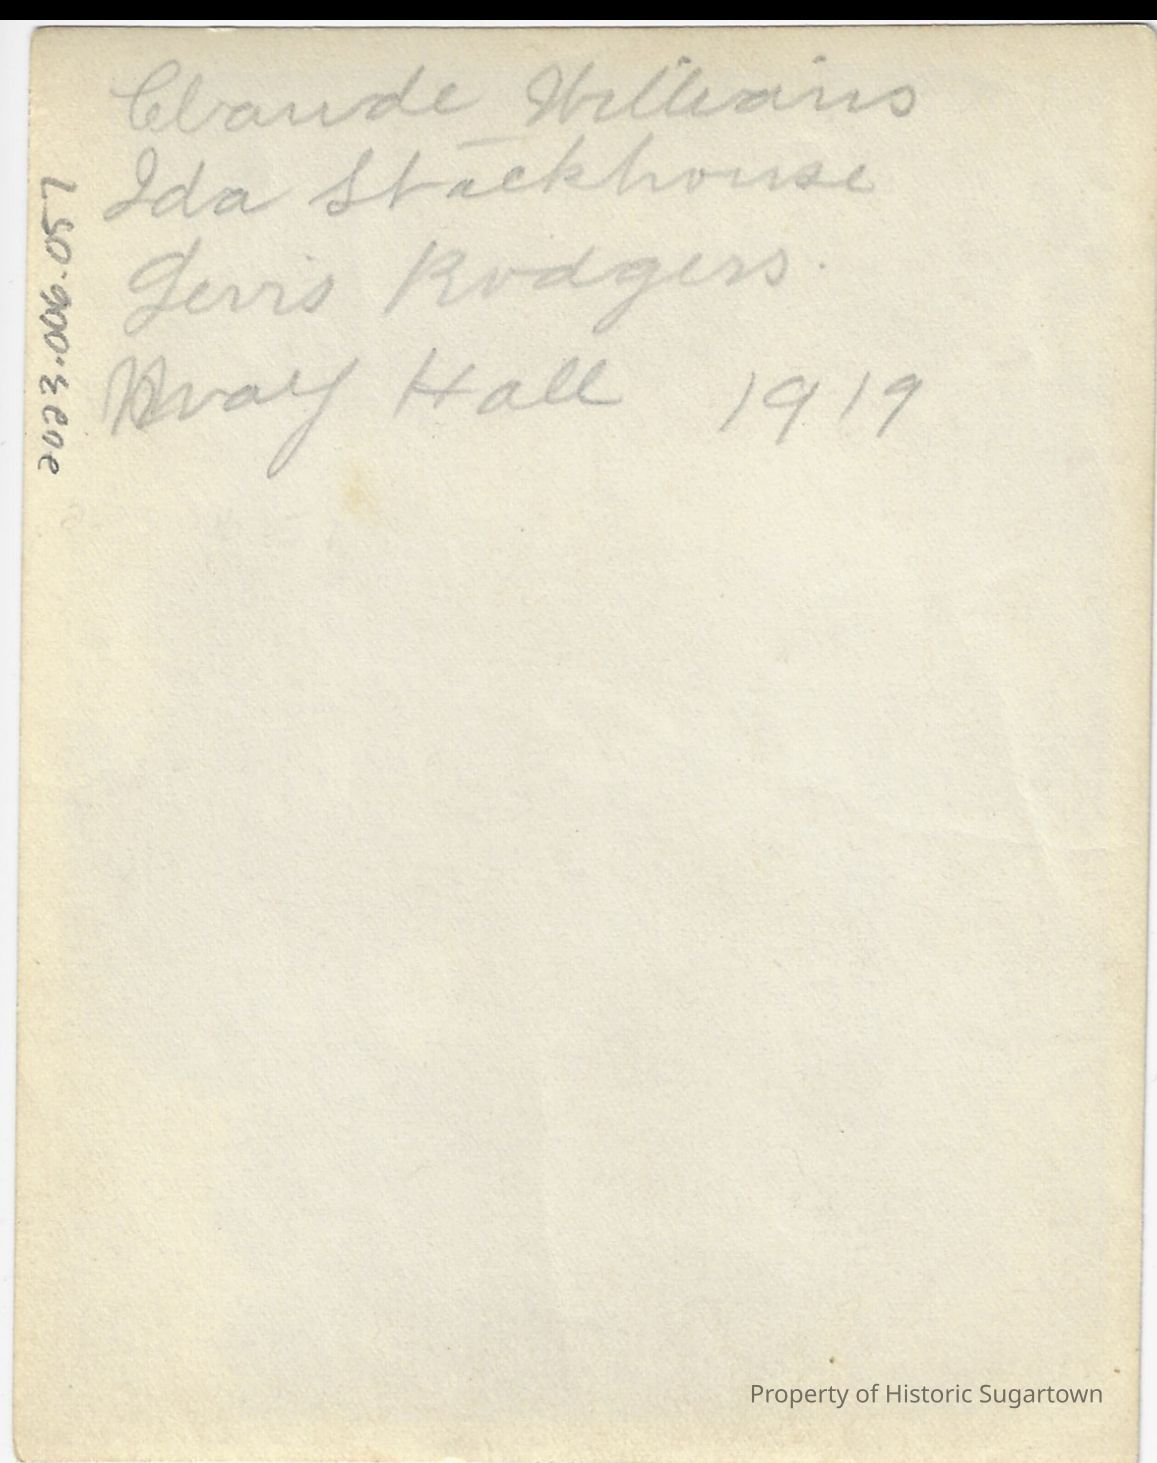 Claude Williams
Ida Stackhouse
Rodgers.
Hall 1919
2023.006.057
Property of Historic Sugartown